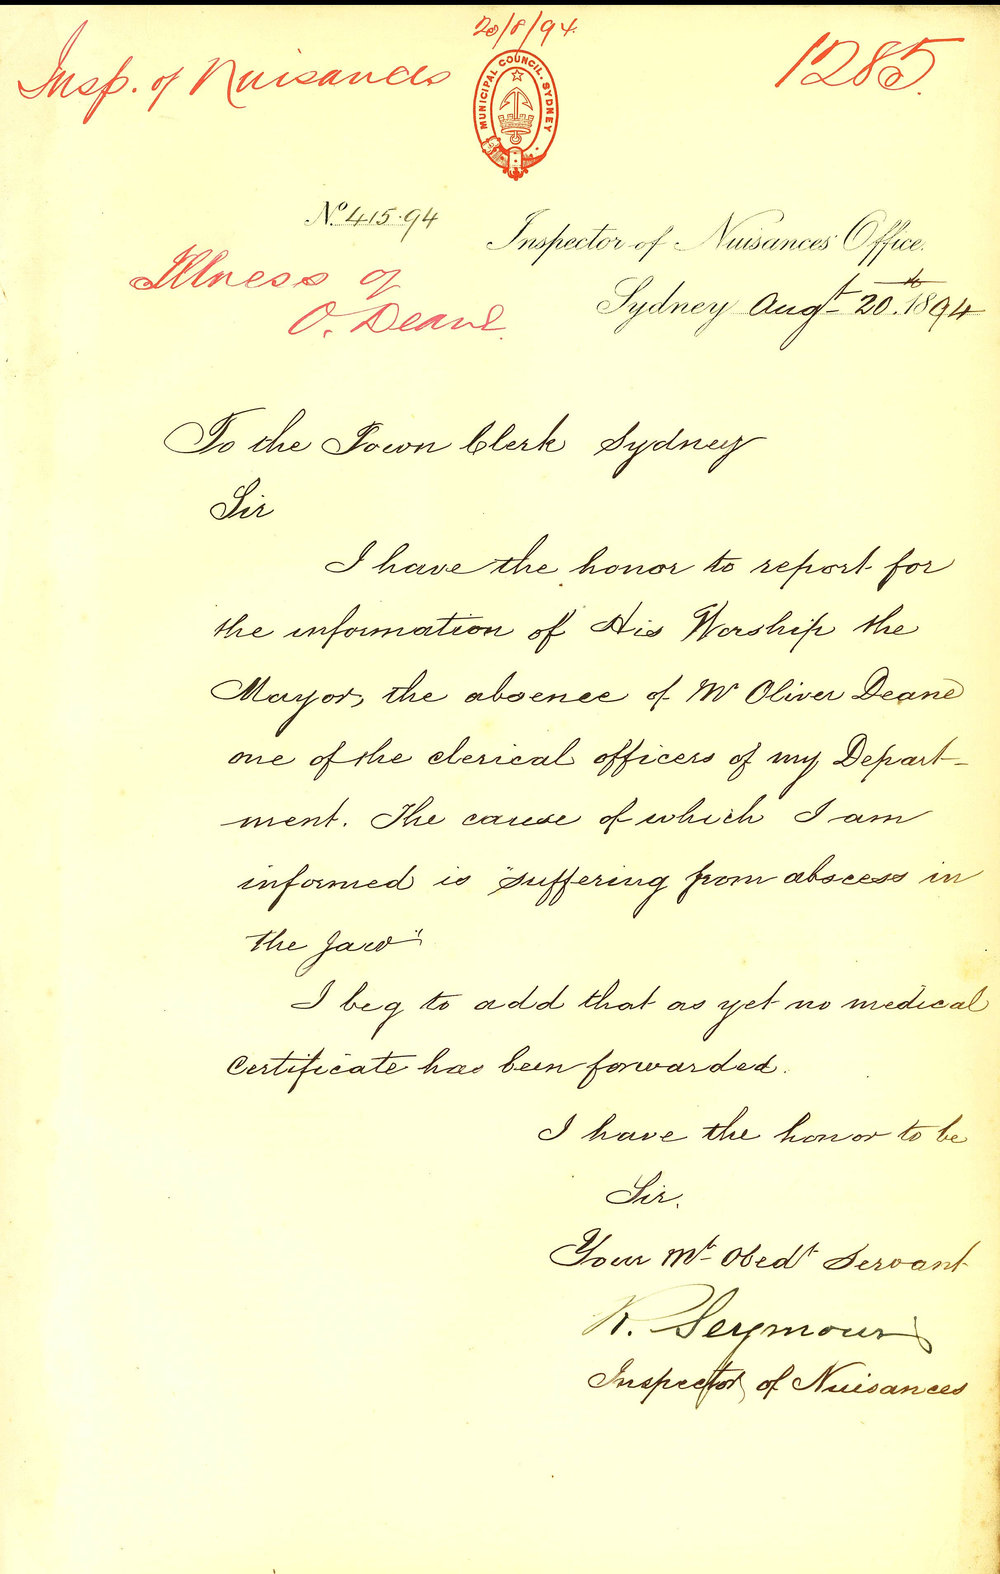 20/8/94.
Insp. of Nuisances
1285.
MUNICIPAL COUNCIL. SYDNEY
No. 415.94
Inspector of Nuisances' Office.
Illness of
O. Deane.
Sydney Augt 20th. 1894
To the Town Clerk Sydney
Sir
I have the honor to report for
the information of His Worship the
Mayor, the absence of Mr Oliver Deane
one of the clerical officers of my Depart-
ment. The cause of which I am
informed is "suffering from abscess in
the Jaw"
I beg to add that as yet no medical
Certificate has been forwarded.
I have the honor to be
Sir.
Your Mt Obedt Servant
R. Seymour
Inspector of Nuisances